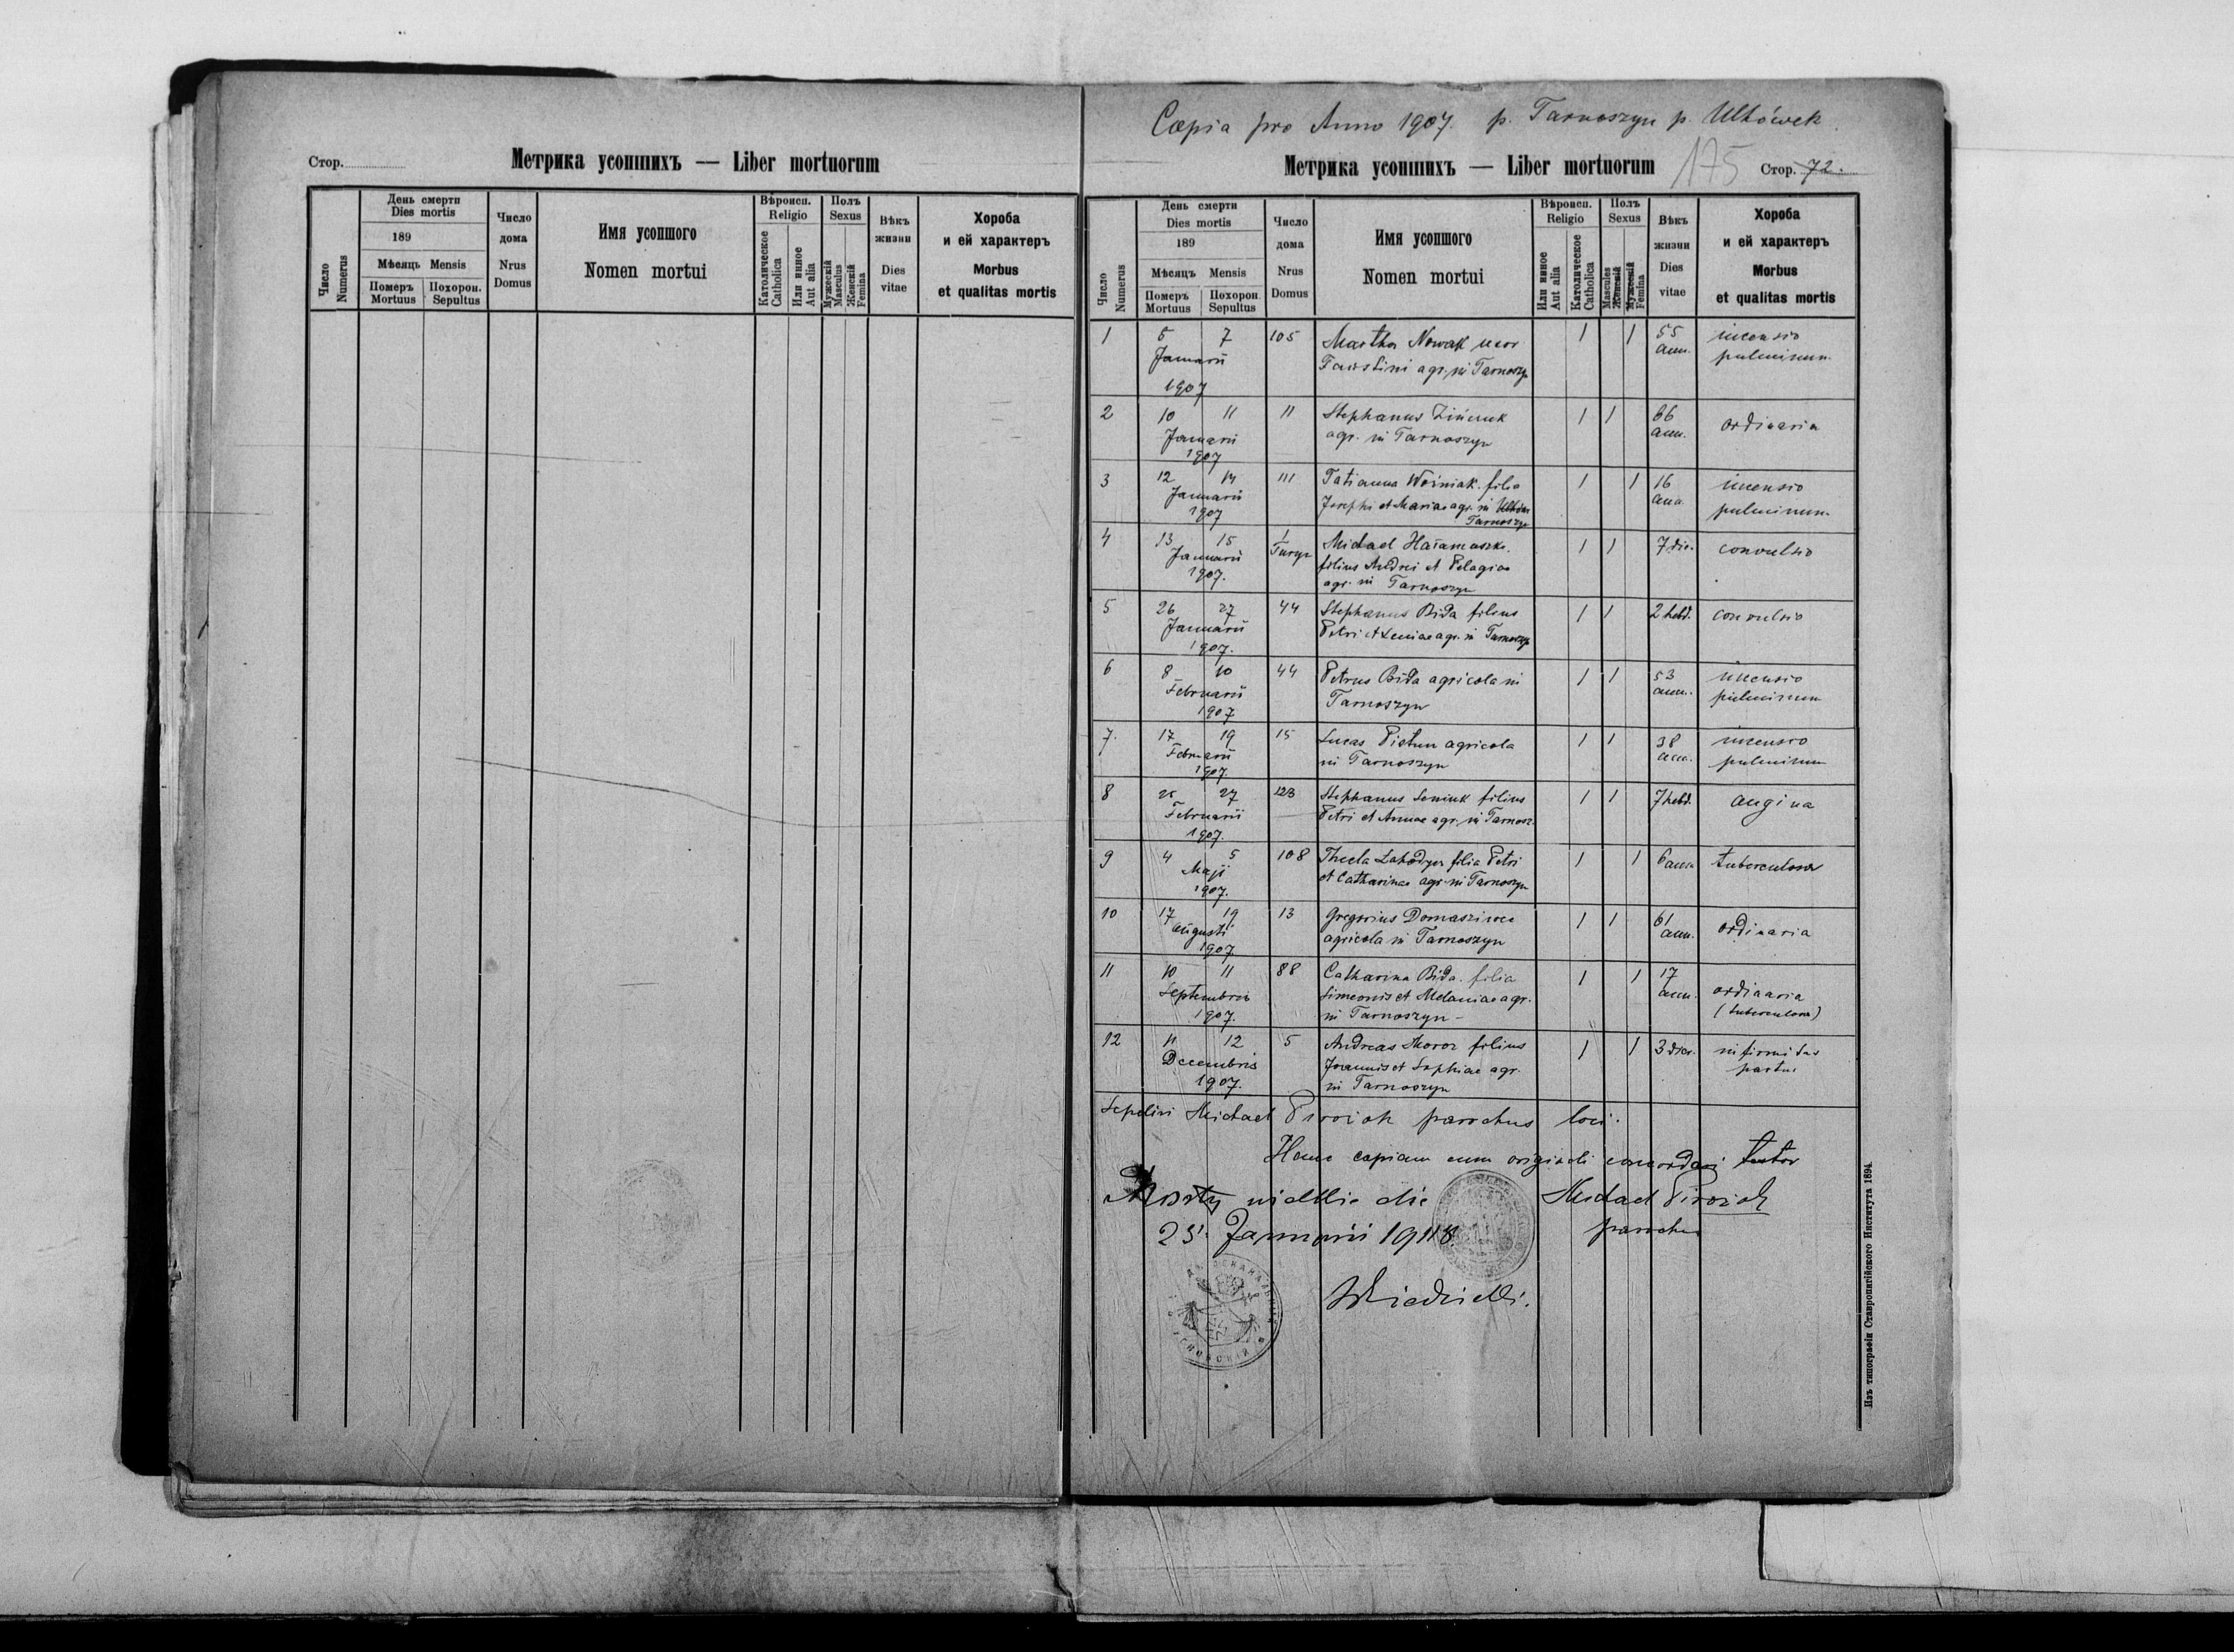 Стор.
Метрика усопшихъ — Liber mortuorum
Число Numerus
День смерти
Dies mortis
189
Мѣсяць Mensis
Померъ Mortuus
Похорон. Sepultus
Число дома
Nrus Domus
Имя усопшого
Nomen mortui
Вѣроисп. Religio
Католическое Catholica
Или инное Aut alia
Полъ Sexus
Мужескій Masculus
Женскій Femina
Вѣкъ жизни
Dies vitae
Хороба и ей характеръ
Morbus et qualitas mortis
Copia pro Anno 1907. p. Tarnoszyn p. Uhówek
Метрика усопшихъ — Liber mortuorum
175
Стор. 72.
Число Numerus
День смерти
Dies mortis
189
Мѣсяць Mensis
Померъ Mortuus
Похорон. Sepultus
Число дома
Nrus Domus
Имя усопшого
Nomen mortui
Вѣроисп. Religio
Или инное Aut alia
Католическое Catholica
Полъ Sexus
Masculus Женскій
Мужескій Femina
Вѣкъ жизни
Dies vitae
Хороба и ей характеръ
Morbus et qualitas mortis
1 5 7 105 Martha Nowak uxor 1 1 55 incensio
Januarii Faustini agr. in Tarnoszyn ann. pulminum
1907
2 10 11 11 Stephanus 1 1 66 ordinaria
Januarii agr. in Tarnoszyn ann.
1907
3 12 14 111 Tatianna Wośniak filia 1 1 16 incensio
Januarii Josephi et Mariae agr. in ann. pulminum
1907 Tarnoszyn
4 13 15 1 Michael 1 1 7 die. convulsio
Januarii filius Andrei et Pelagiae
1907. agr. in Tarnoszyn
5 26 27 44 Stephanus Bida filius 1 1 2 hebd. convulsio
Januarii Petri et agr. in Tarnoszyn
1907.
6 8 10 44 Petrus Bida agricola in 1 1 53 incensio
Februarii Tarnoszyn ann. pulminum
1907
7. 17 19 15 Lucas agricola 1 1 38 incensio
Februarii in Tarnoszyn ann. pulminum
1907.
8 25 27 123 Stephanus Seniuk filius 1 1 7 hebd. angina
Februarii Petri et Annae agr. in Tarnosz.
1907.
9 4 5 108 Thecla filia Petri 1 1 6 ann. tuberculosa
Maji et Catharinae agr. in Tarnoszyn
1907.
10 17 19 13 Gregorius 1 1 61 ordinaria
augusti agricola in Tarnoszyn ann.
1907.
11 10 11 88 Catharina Bida filia 1 1 17 ordinaria
Septembris Simeonis et Melaniae agr. ann. (tuberculosa)
1907. in Tarnoszyn
12 11 12 5 Andreas Moroz filius 1 1 3 dies. infirmitas
Decembris Joannis et Sophiae agr. partus
1907. in Tarnoszyn
Sepelivi Michael parochus loci.
Hanc copiam cum originali concordari testor
Mosty die Michael
25. Januarii 1908. parochus
Изъ типографіи Ставропигійского Института 1894.